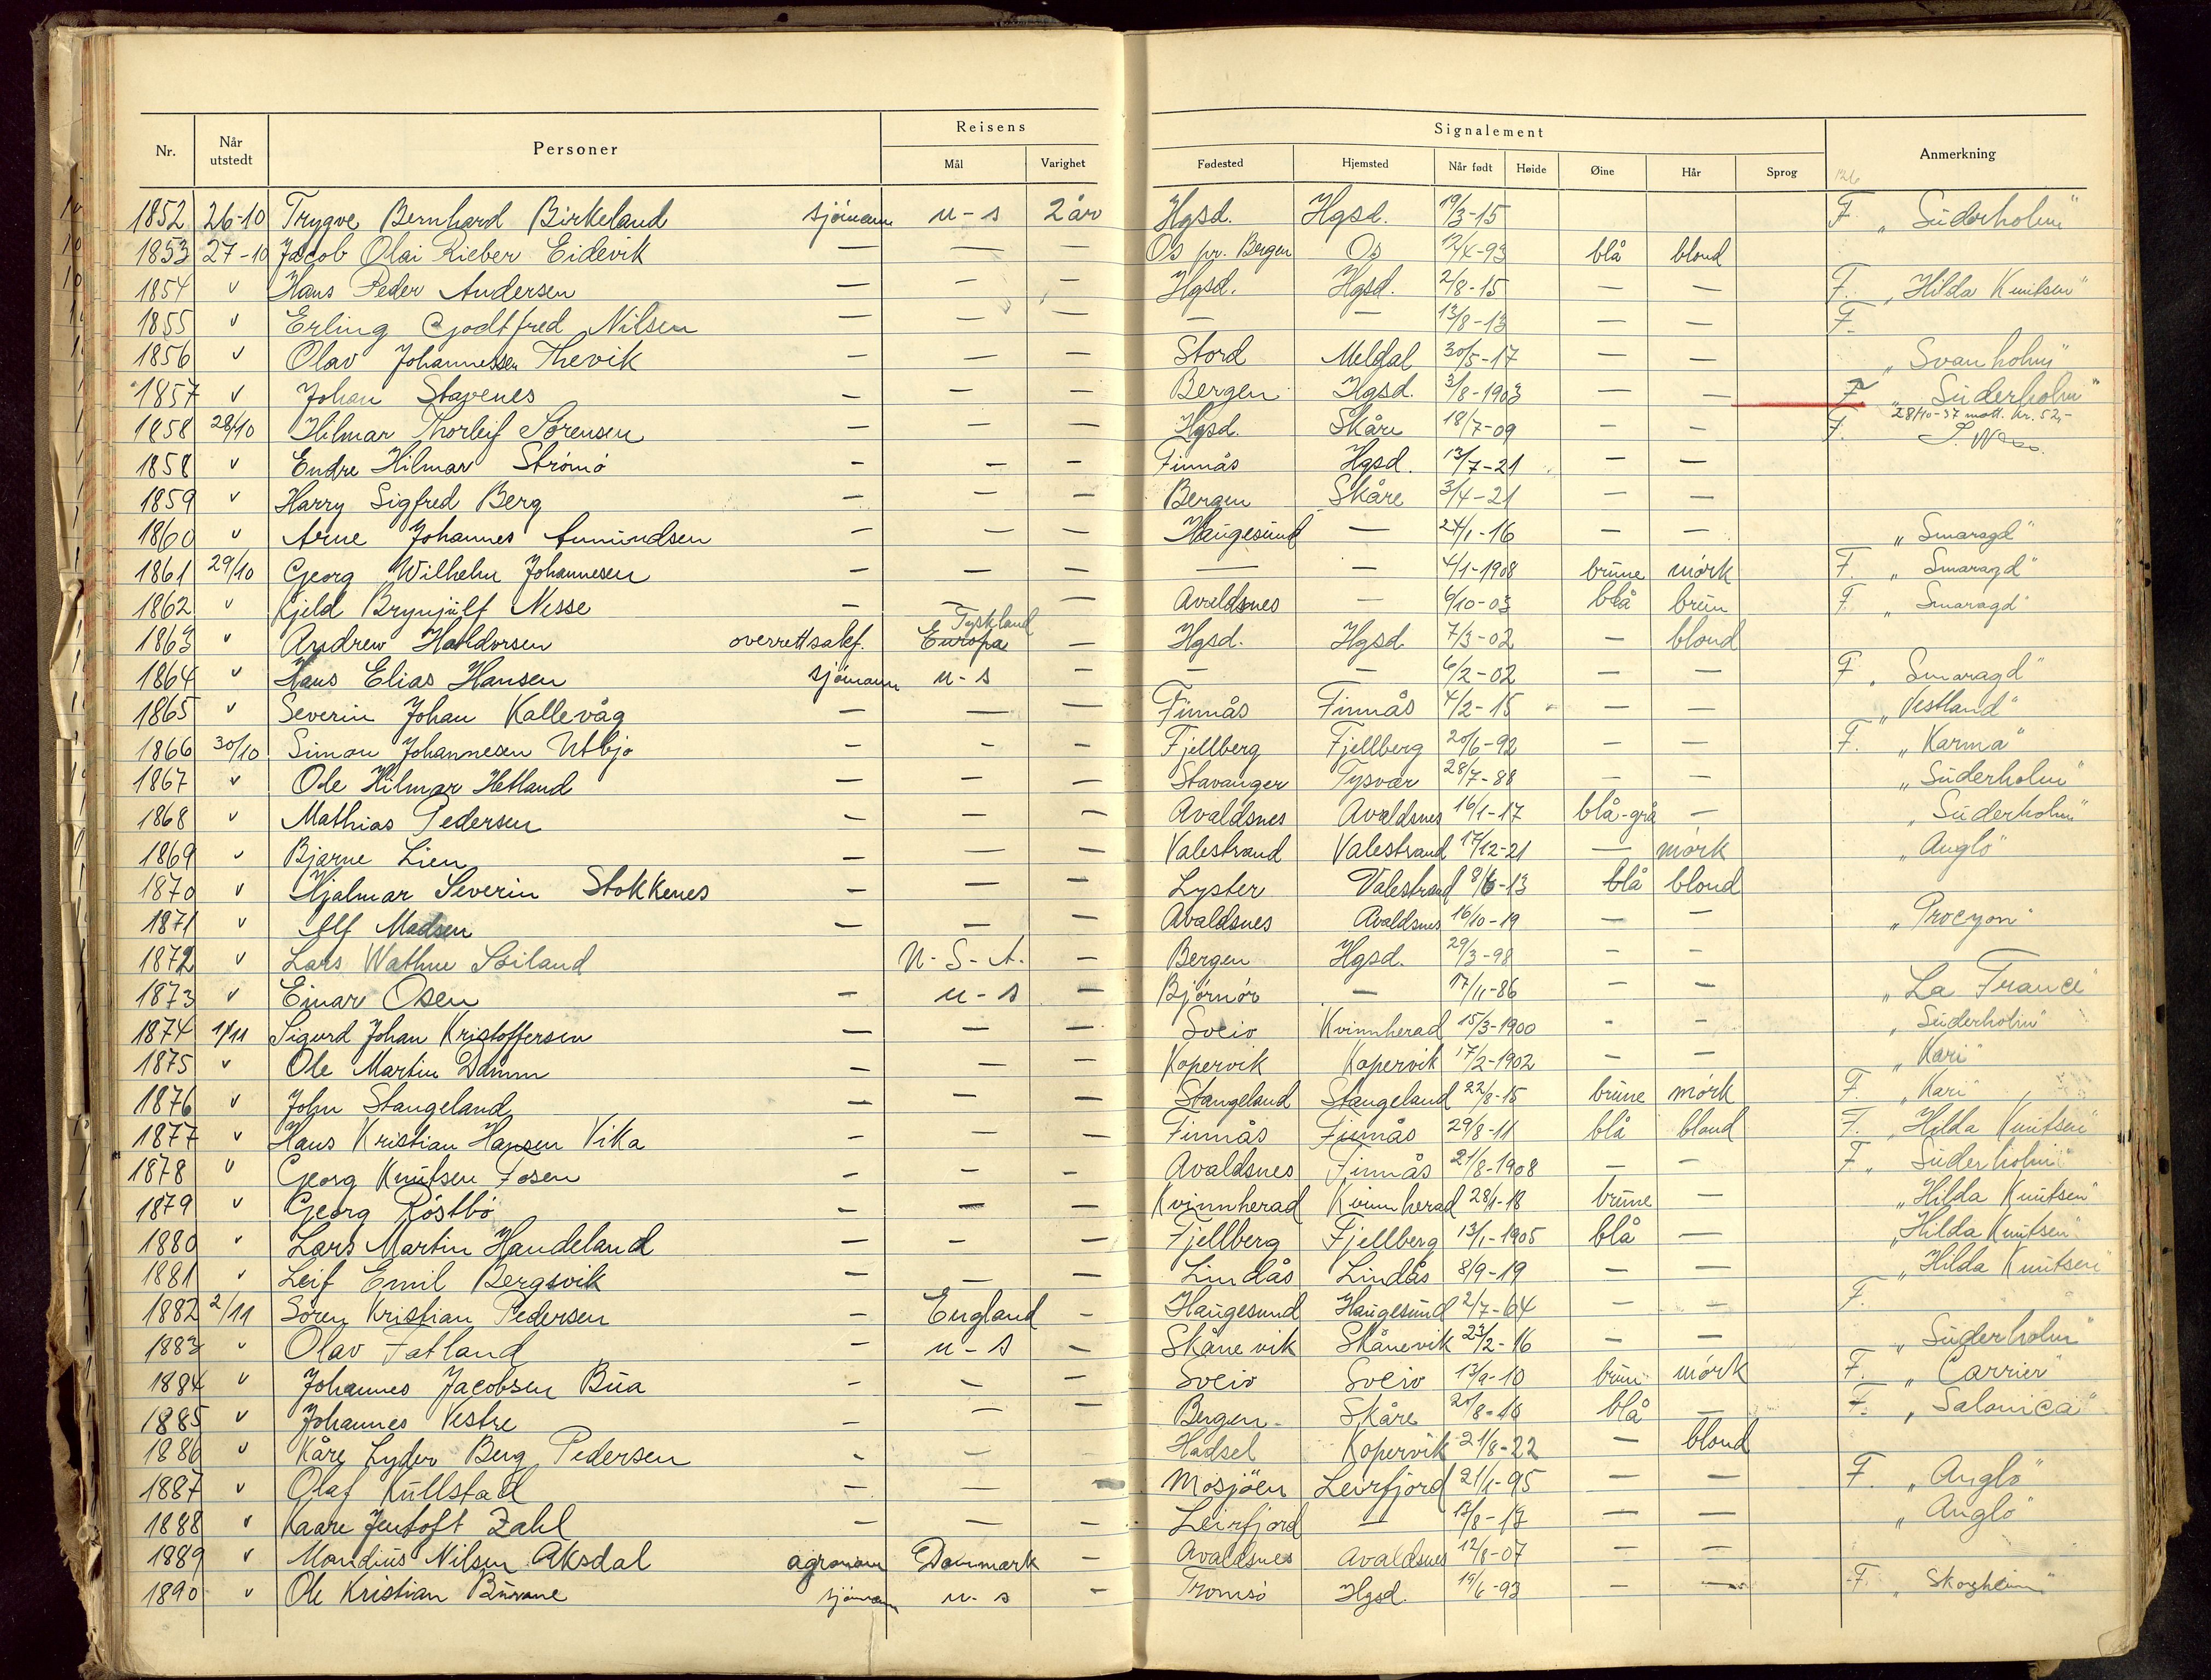 Nr. Når utstedt Personer Reisens Mål Varighet Signalement Fødested Hjemsted Når født Høide Øine Hår Sprog Anmerkning
126
1852 26-10 Trygve Bernhard Birkeland sjömann u-s 2 år Hgsd. Hgsd. 19/3-15 F. „Süderholm"
1853 27-10 Jacob Olai Rieber Eidevik — — — Os pr. Bergen Os 12/4-93 blå blond
1854 v Hans Peder Andersen — — — Hgsd. Hgsd. 2/8-15 — — F. „Hilda Knutsen"
1855 v Erling Godtfred Nilsen — — — — — 13/8-13 — — F.
1856 v Olav Johannessen Thevik — — — Stord Meldal 30/5-17 — — „Svanholm"
1857 v Johan Stavenes — — — Bergen Hgsd. 3/8-1903 — — F. „Süderholm"
1858 28/10 Hilmar Thorleif Sörensen — — — Hgsd. Skåre 18/7-09 — — F. 28/10-37 mott. kr. 52,-
1858 v Endre Hilmar Strömö — — — Finnås Hgsd. 13/7-21 — —
1859 v Harry Sigfred Berg — — — Bergen Skåre 3/4-21 — —
1860 v Arne Johannes Amundsen — — — Haugesund — 24/1-16 — — „Smaragd"
1861 29/10 Georg Wilhelm Johannesen — — — — — 4/1-1908 brune mörk F. „Smaragd"
1862 v Kjeld Brynjulf Nesse — — — Avaldsnes — 6/10-03 blå brun F. „Smaragd"
1863 v Andrew Halldorsen overrettsakf. Europa Tyskland — Hgsd. Hgsd 7/3-02 — blond
1864 v Hans Elias Hansen sjömann u-s — — — 6/2-02 — — F. „Smaragd"
1865 v Severin Johan Kallevåg — — — Finnås Finnås 4/2-15 — — „Vestland"
1866 30/10 Simon Johannesen Utbjo — — — Fjellberg Fjellberg 20/6-92 — — F. „Karma"
1867 v Ole Hilmar Hetland — — — Stavanger Tysvær 28/7-88 — — „Süderholm"
1868 v Mathias Pedersen — — — Avaldsnes Avaldsnes 16/1-17 blå-grå — „Süderholm"
1869 v Bjarne Lien — — — Valestrand Valestrand 17/12-21 — mörk „Anglo"
1870 v Hjalmar Severin Stokkenes — — — Lyster Valestrand 8/6-13 blå blond
1871 v Alf Madsen — — — Avaldsnes Avaldsnes 16/10-19 — — „Procyon"
1872 v Lars Wathne Soiland U-S-A. — Bergen Hgsd. 29/3-98 — —
1873 v Einar Osen — u-s — Björnör — 17/11-86 — — „La France"
1874 1/11 Sigurd Johan Kristoffersen — — — Sveio Kvinnherad 15/3-1900 - - „Süderholm"
1875 v Ole Martin Damm — — — Kopervik Kopervik 17/2-1902 — — „Kari"
1876 v John Stangeland — — — Stangeland Stangeland 22/8-15 brune mörk F. „Kari"
1877 v Hans Kristian Hansen Vika — — — Finnås Finnås 29/8-11 blå blond F. „Hilda Knutsen"
1878 v Georg Knutsen Fosen — — — Avaldsnes Finnås 21/8-1908 — — F. „Süderholm"
1879 v Georg Röstbö — — — Kvinnherad Kvinnherad 28/1-18 brune — „Hilda Knutsen"
1880 v Lars Martin Handeland — — — Fjellberg Fjellberg 13/1-1905 blå — „Hilda Knutsen"
1881 v Leif Emil Bergsvik — — — Lindås Lindås 8/9-19 — — „Hilda Knutsen"
1882 2/11 Sören Kristian Pedersen — England — Haugesund Haugesund 2/7-64 — — F.
1883 v Olav Fatland — u-s — Skånevik Skånevik 23/2-16 — — „Süderholm"
1884 v Johannes Jacobsen Bua — — — Sveio Sveio 13/9-10 brune mörk F. „Carrier"
1885 v Johannes Vestre — — — Bergen Skåre 20/8-16 blå — F. „Salonica"
1886 v Kåre Lyder Berg Pedersen - — — Hadsel Kopervik 21/8-22 — blond
1887 v Olaf Kullstad — — — Mosjöen Leirfjord 21/1-95 — — F. „Anglo"
1888 v Kaare Jentoft Zahl — — — Leirfjord — 13/8-17 — — „Anglo"
1889 v Mandius Nilsen Aksdal agronom Danmark — Avaldsnes Avaldsnes 12/8-07 — —
1890 v Ole Kristian sjömann u-s — Tromsö Hgsd. 19/6-93 — — F. „Skogheim"